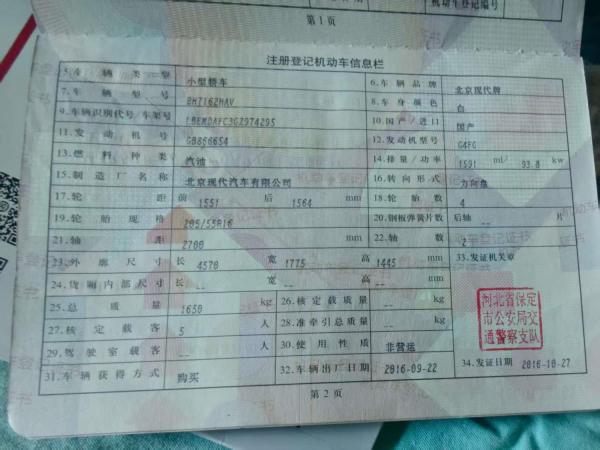 机动车登记编号
第1页
注册登记机动车信息栏
5.车辆类型 小型轿车 6.车辆品牌 北京现代牌
7.车辆型号 BH7162HAV 8.车身颜色 白
9.车辆识别代号/车架号 LBEMDAFC3GZ974295 10.国产/进口 国产
11.发动机号 GB866654 12.发动机型号 G4FG
13.燃料种类 汽油 14.排量/功率 1591 ml/ 93.8 kw
15.制造厂名称 北京现代汽车有限公司 16.转向形式 方向盘
17.轮距 前 1551 后 1564 mm 18.轮胎数 4
19.轮胎规格 205/55R16 20.钢板弹簧片数 后轴 -- 片
21.轴距 2700 mm 22.轴数 2
23.外廓尺寸 长 4570 宽 1775 高 1445 mm 33.发证机关章
24.货厢内部尺寸 长 -- 宽 -- 高 -- mm
25.总质量 1650 kg 26.核定载质量 -- kg
27.核定载客 5 人 28.准牵引总质量 -- kg
河北省保定
市公安局交
通警察支队
29.驾驶室载客 -- 人 30.使用性质 非营运
31.车辆获得方式 购买 32.车辆出厂日期 2016-09-22 34.发证日期 2016-10-27
第2页